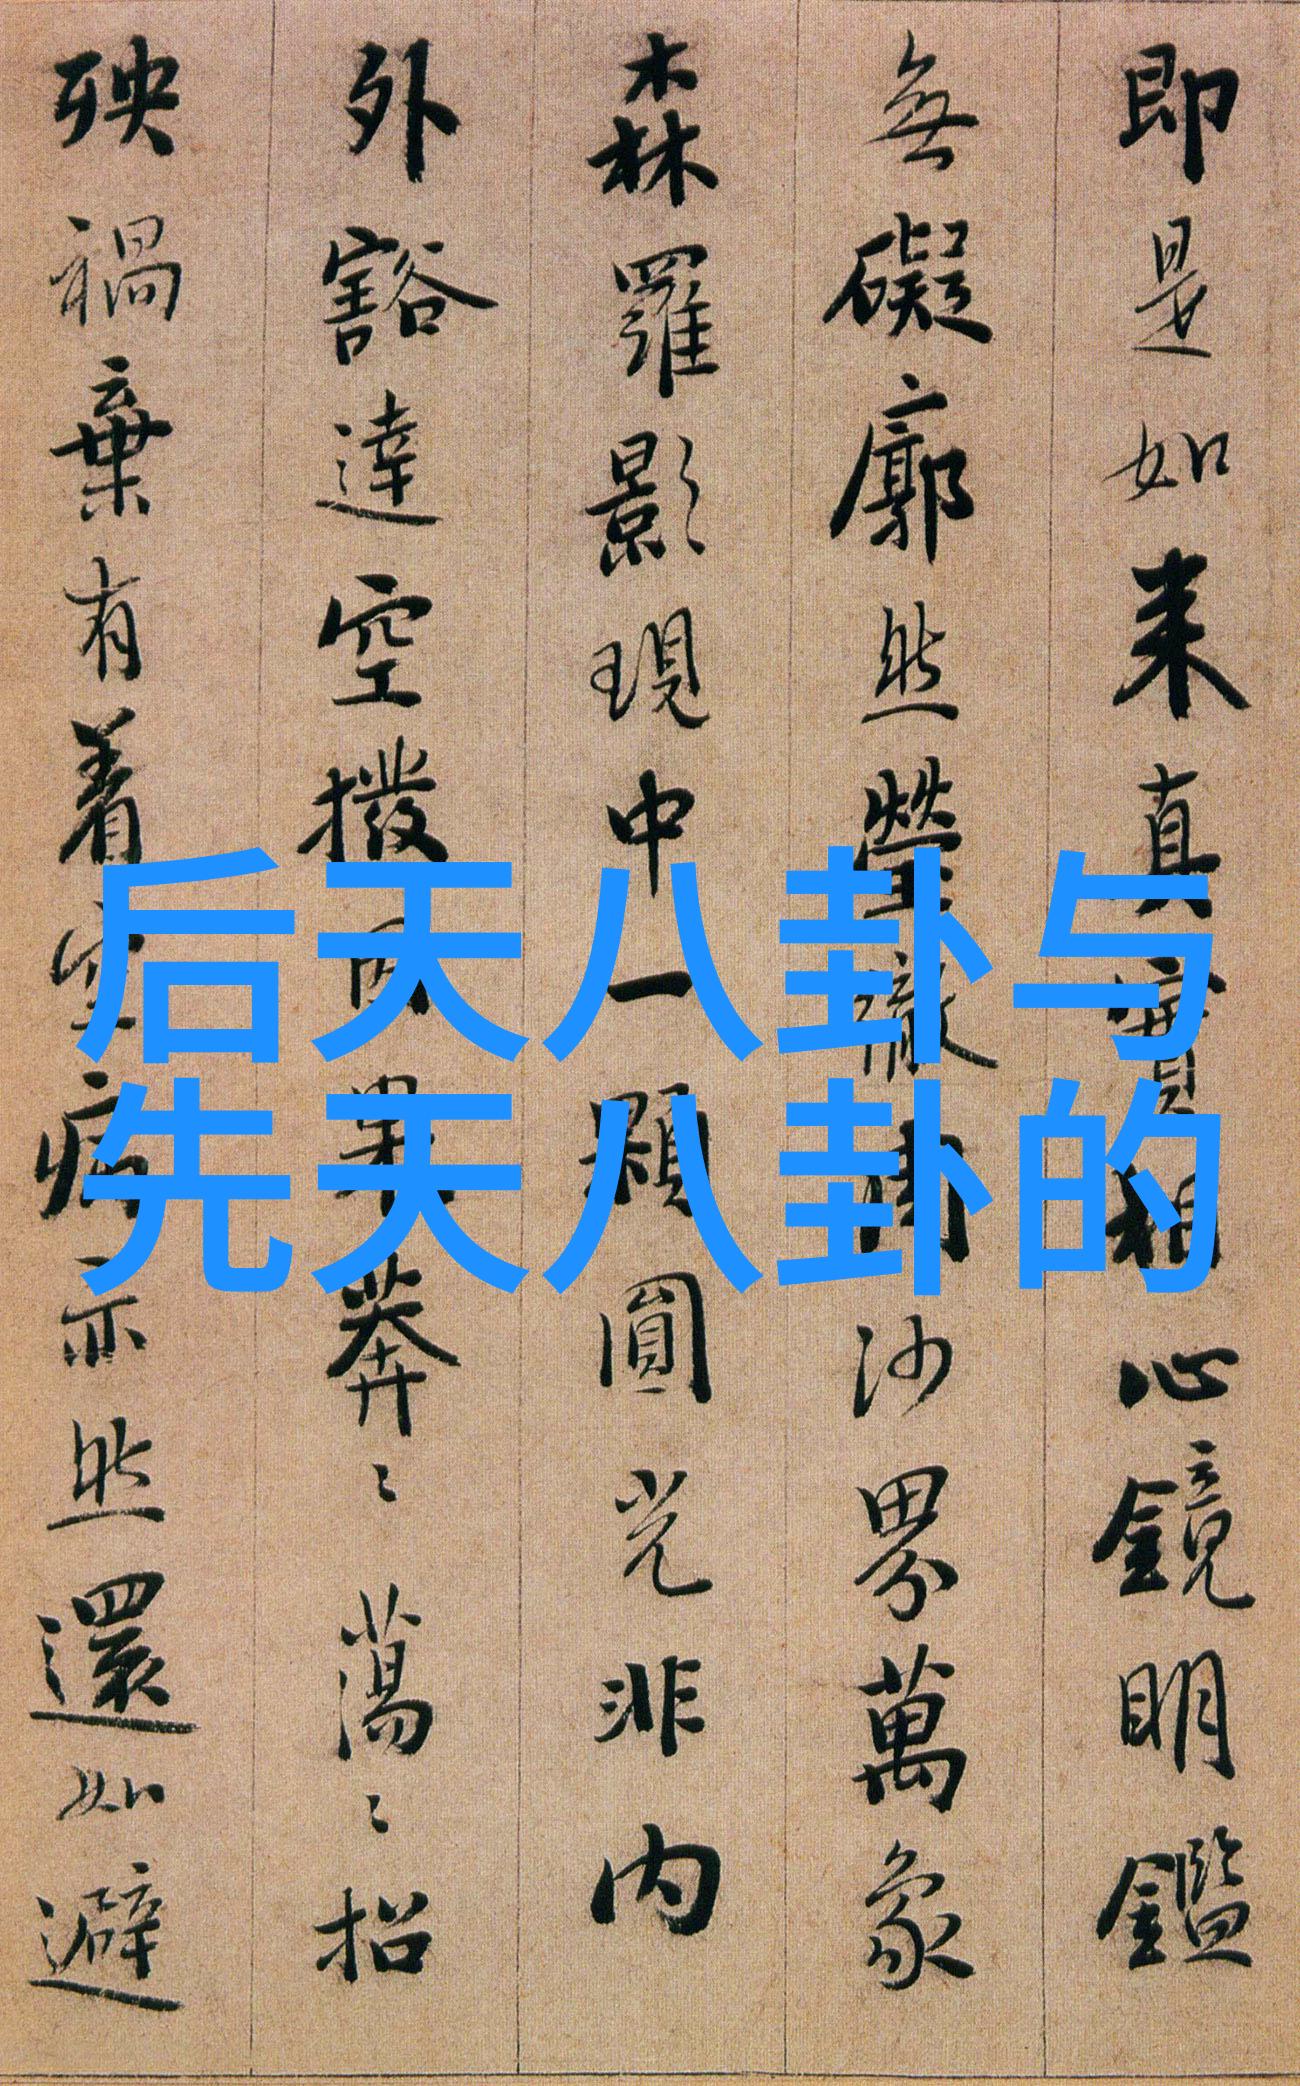 即是如来真實相心鏡明鑑
無礙廓然瑩徹周沙界萬象
森羅影現中一顆圓光非内
外豁達空撥因果莽〻蕩〻招
殃禍棄有着空病亦然還如避
后天八卦与
先天八卦的